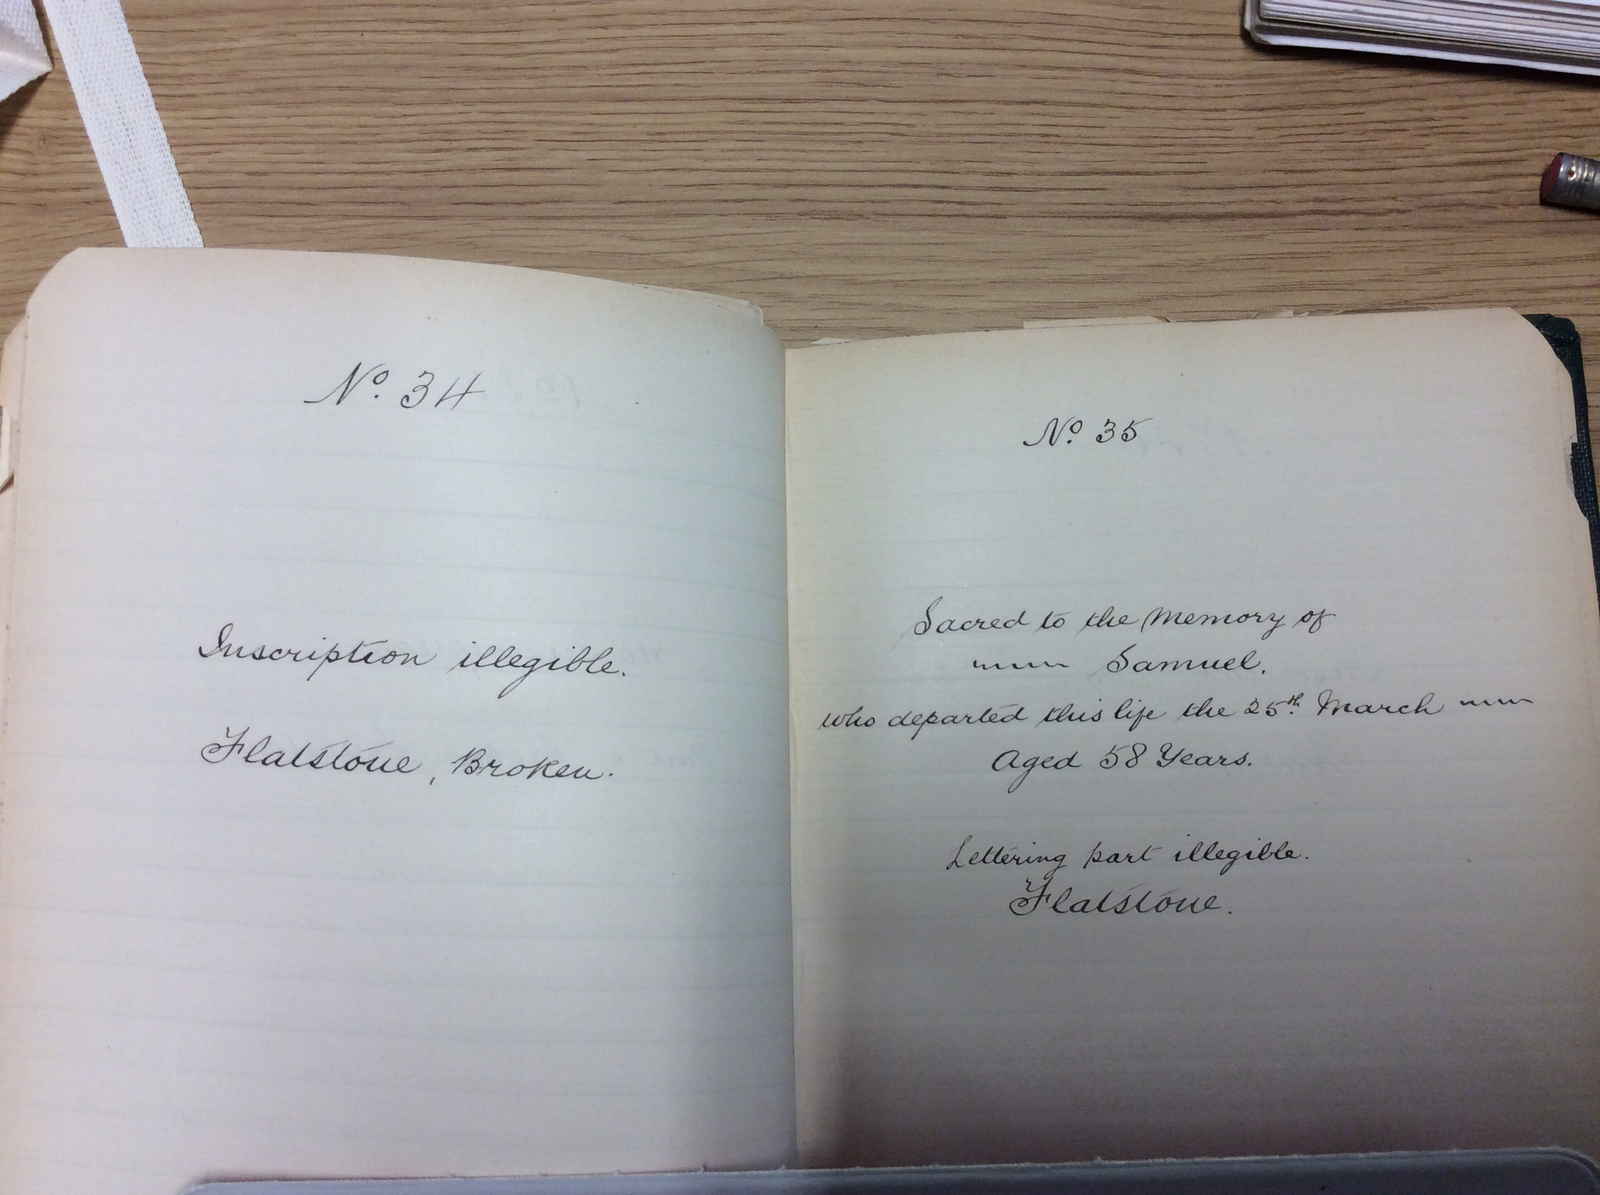 No. 34
Inscription illegible.
Flatstone, Broken.
No. 35
Sacred to the Memory of
Samuel.
who departed this life the 25th. March
Aged 58 Years.
Lettering part illegible.
Flatstone.